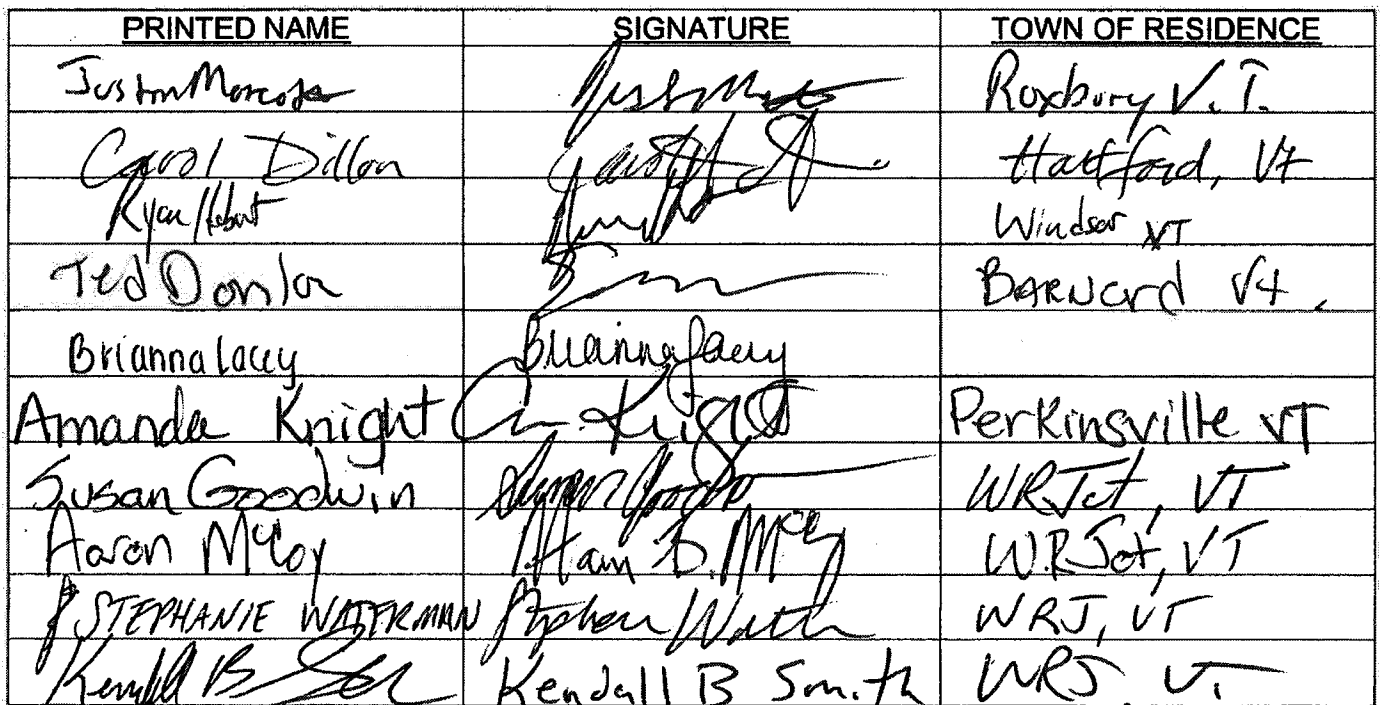 PRINTED NAME SIGNATURE TOWN OF RESIDENCE
Justin Roxbury V.T.
Carol Dillon Hartford, Vt
Ryan Hebert Windsor VT
Ted Donlon BARNard Vt.
Brianna Lacey Brianna Lacey
Amanda Knight A Knight Perkinsville VT
Susan Goodwin Susan Goodwin WRJct, VT
Aaron McCoy D. McCoy W.R.Jct, VT
STEPHANIE WATERMAN WRJ, VT
Kendall B Kendall B Smith WRJ VT